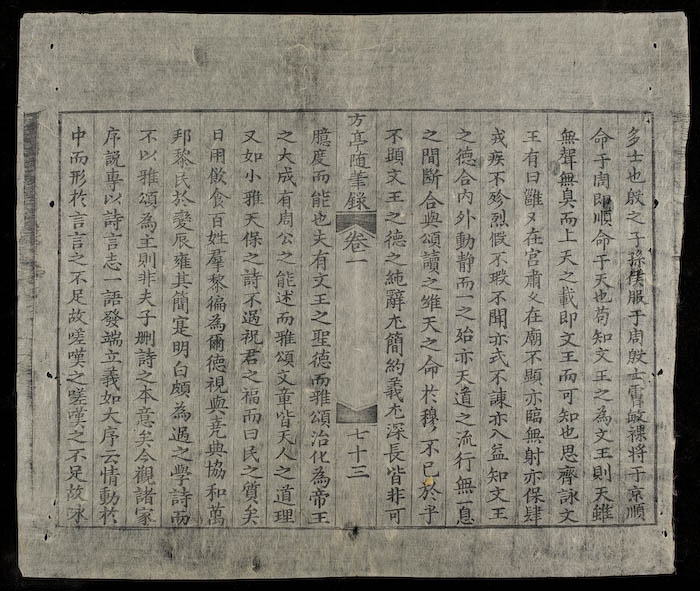 多士也殷之子孫僕服于周殷士膚敏祼將于京順
命于周即順命于天也苟知文王之為文王則天雖
無聲無臭而上天之載即文王而可知也思齊詠文
王有曰雝〻在宮肅〻在廟不顯亦臨無射亦保肆
戎疾不殄烈假不瑕不聞亦式不諫亦入益知文王
之德合內外動靜而一之殆亦天道之流行無一息
之間斷合與頌讀之維天之命於穆不已於乎
不顯文王之德之純辭尤簡約義尤深長皆非可
方亭隨筆錄 卷一 七十三
臆度而能也夫有文王之聖德而雅頌治化為帝王
之大成有周公之能述而雅頌文章皆天人之道理
又如小雅天保之詩不過祝君之福而曰民之質矣
日用飲食百姓羣黎徧為爾德視與堯典協和萬
邦黎民於變辰雍其簡寔明白頗為過之學詩而
不以雅頌為主則非夫子刪詩之本意矣今觀諸家
序說專以詩言志一語發端立義如大序云情動於
中而形於言言之不足故嗟嘆之嗟嘆之不足故咏